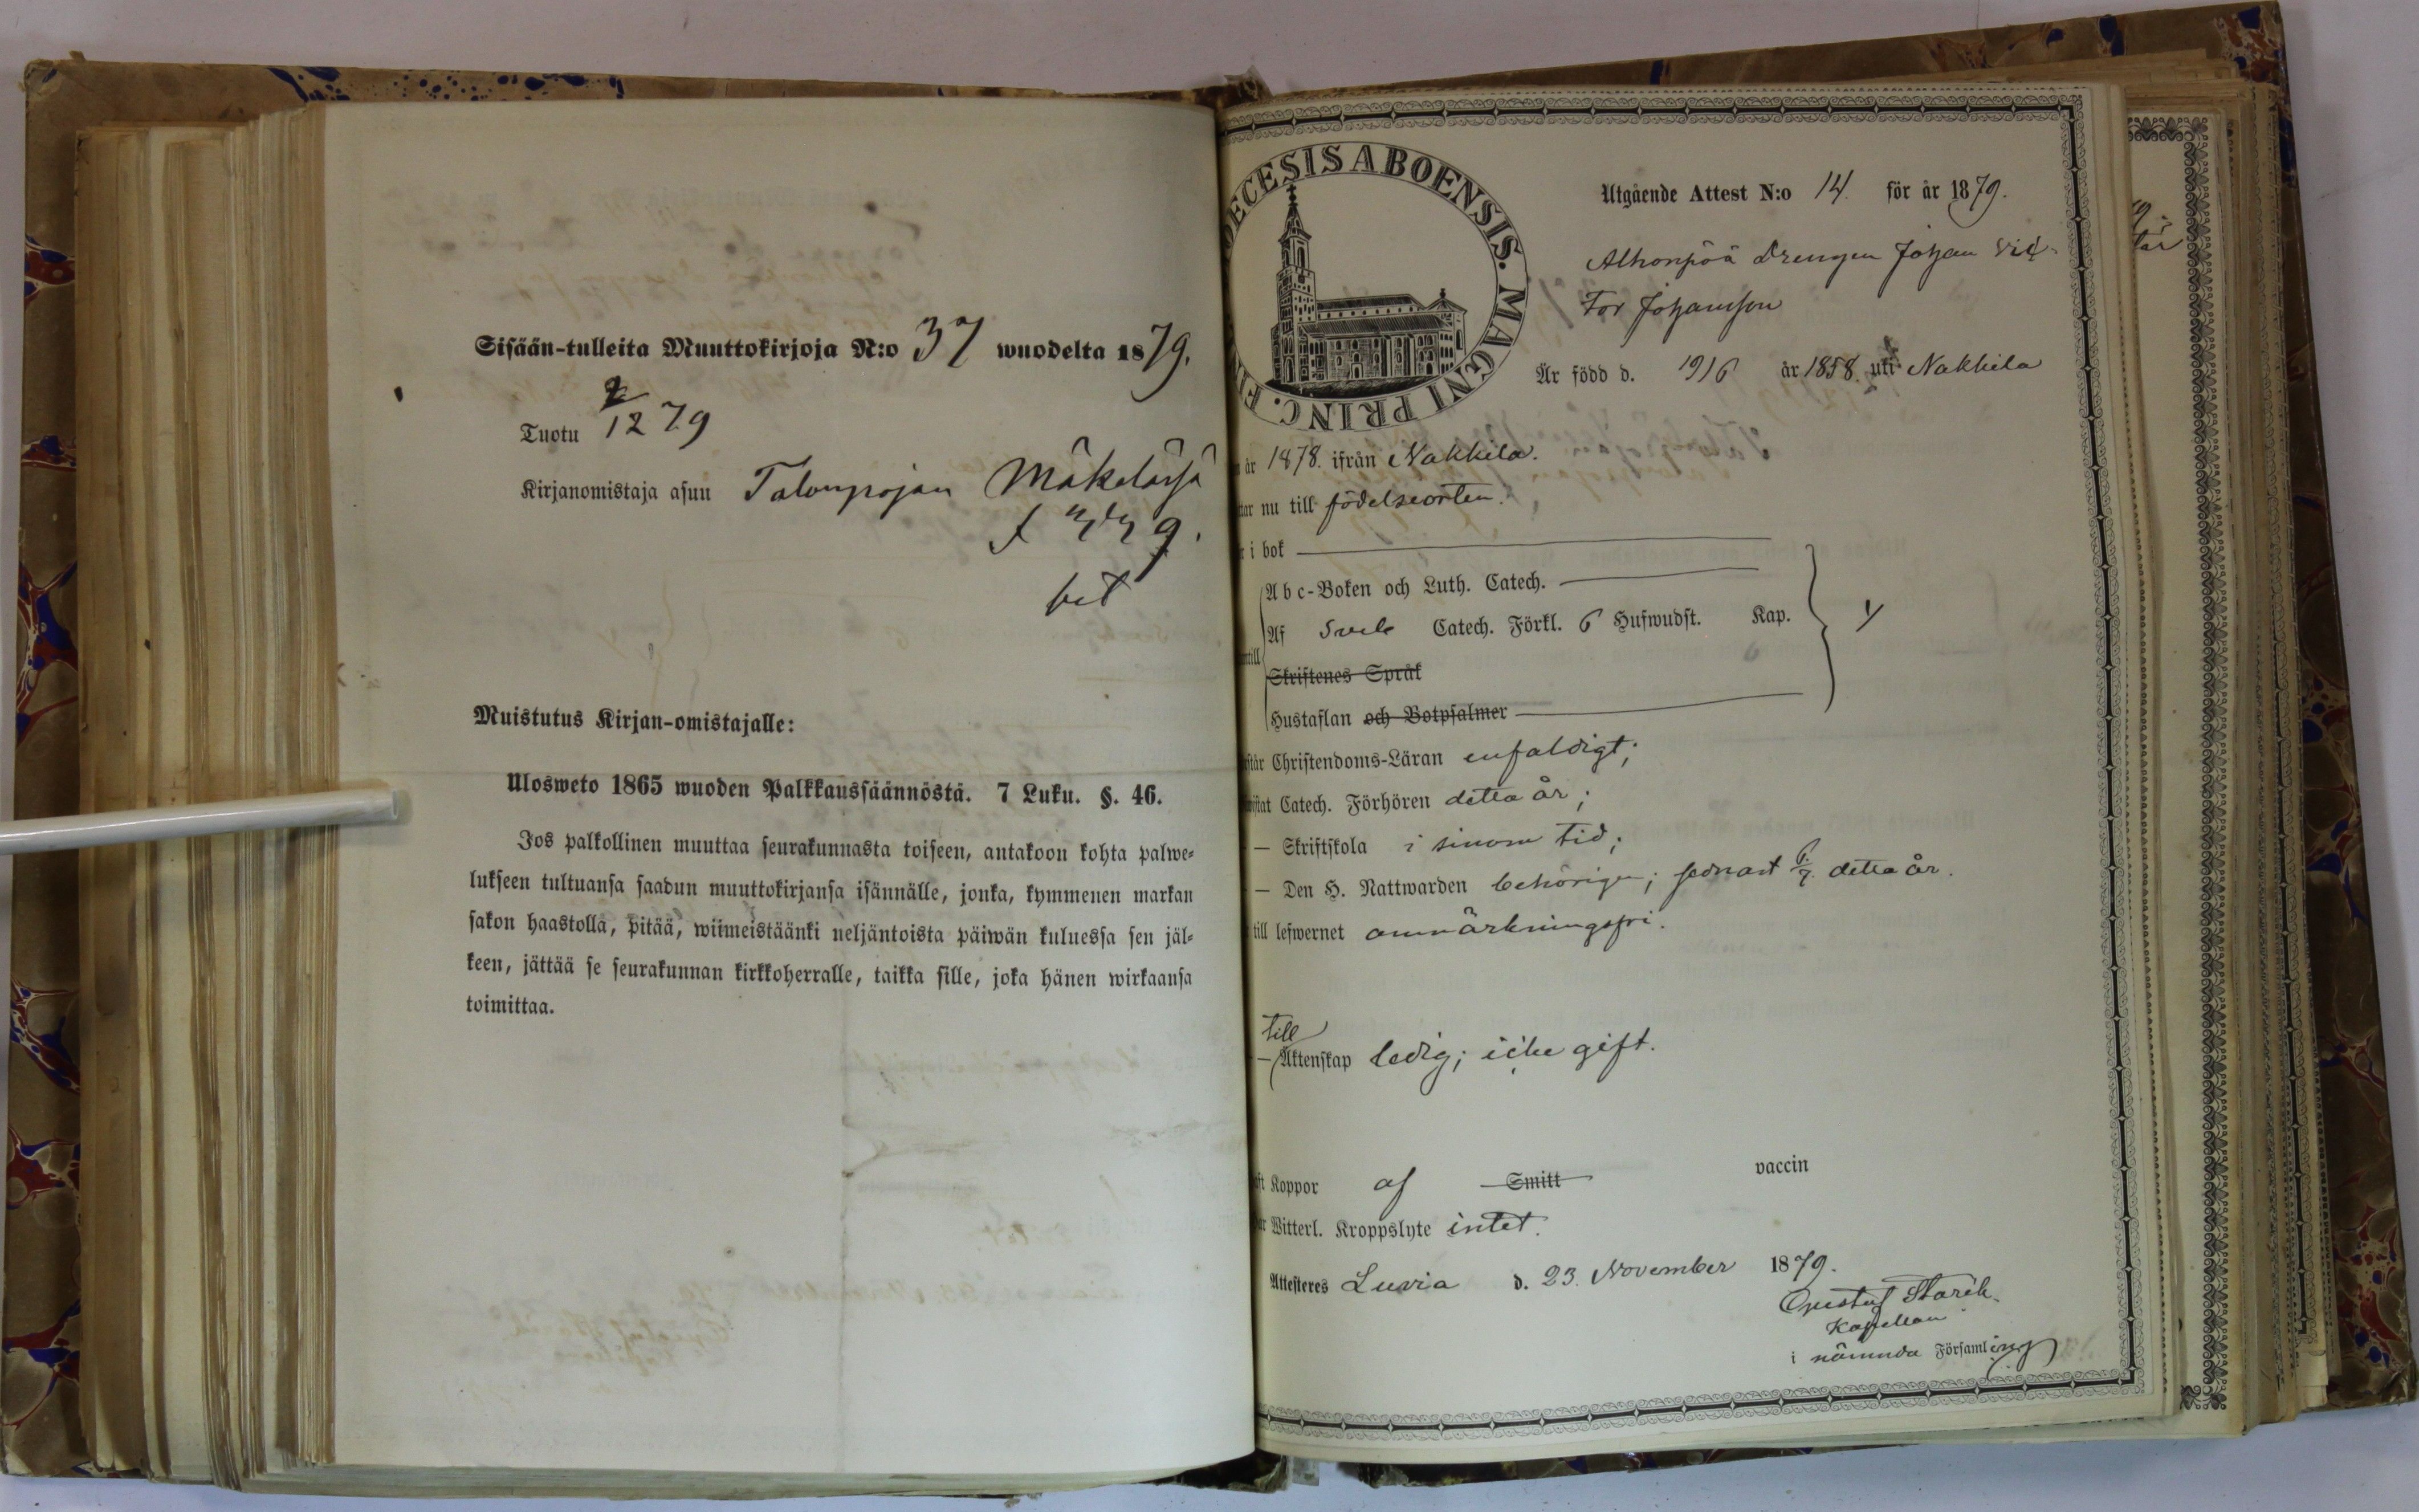 Sisään-tulleita Muuttokirjoja N:o 37 wuodelta 1879.
Tuotu 2/12 79
Kirjanomistaja asuu Talonpojan Mäkelässä
bet
Muistutus Kirjan-omistajalle:
Ulosweto 1865 wuoden Palkkaussäännöstä. 7 Luku. §. 46.
Jos palkollinen muuttaa seurakunnasta toiseen, antakoon kohta palwe-
lukseen tultuansa saadun muuttokirjansa isännälle, jonka, kymmenen markan
sakon haastolla, pitää, wiimeistäänki neljäntoista päiwän kuluessa sen jäl-
keen, jättää se seurakunnan kirkkoherralle, taikka sille, joka hänen wirkaansa
toimittaa.
ECESIS ABOENSIS. MAGNI PRINC. FIN
Utgående Attest N:o 14 för år 1879.
Alhonpää Drengen Johan Vik-
tor Johansson
Är född d. 19/6 år 1858. uti Nakkila
år 1878. ifrån Nakkila.
tar nu till födelseorten.
r i bok
Abc-Boken och Luth. Catech.
Af Sveb Catech. Förkl. 6 Hufwudst. Kap.
ntill
Skriftenes Språk
Hustaflan och Botpsalmer
står Christendoms-Läran enfaldigt;
wistat Catech. Förhören detta år;
— Skriftskola i sinom tid;
— Den H. Nattwarden behörigen; sednast 6/7 detta år.
till lefwernet anmärkningsfri.
till
— Äktenskap ledig; icke gift.
ft Koppor af Smitt vaccin
ar Witterl. Kroppslyte intet.
Attesteres Luvia d. 23. November 1879.
Gustaf Starck
Kapellan
i nämnda Församling